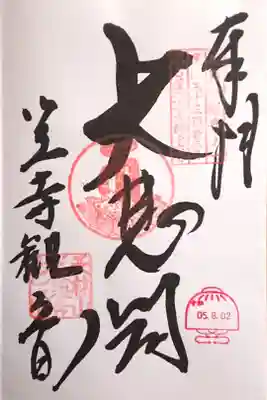 奉拝
大悲閣
笠寺観音
05.8.02